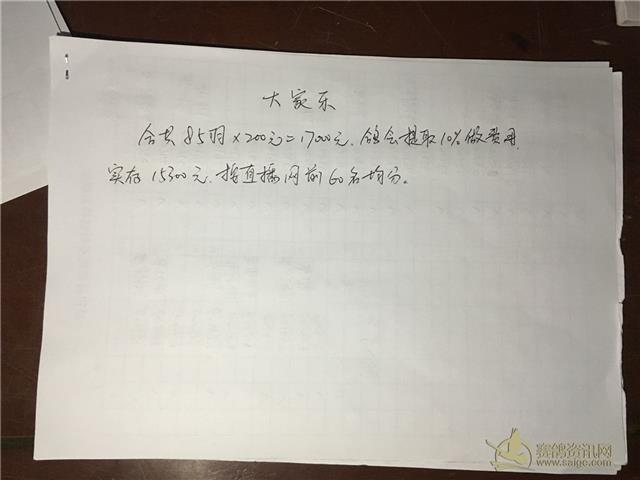 大家乐
合共85羽×200元=17000元、鸽会提取10%做费用
实存15300元、按直播网前60名均分。
赛鸽资讯网
www.saige.com